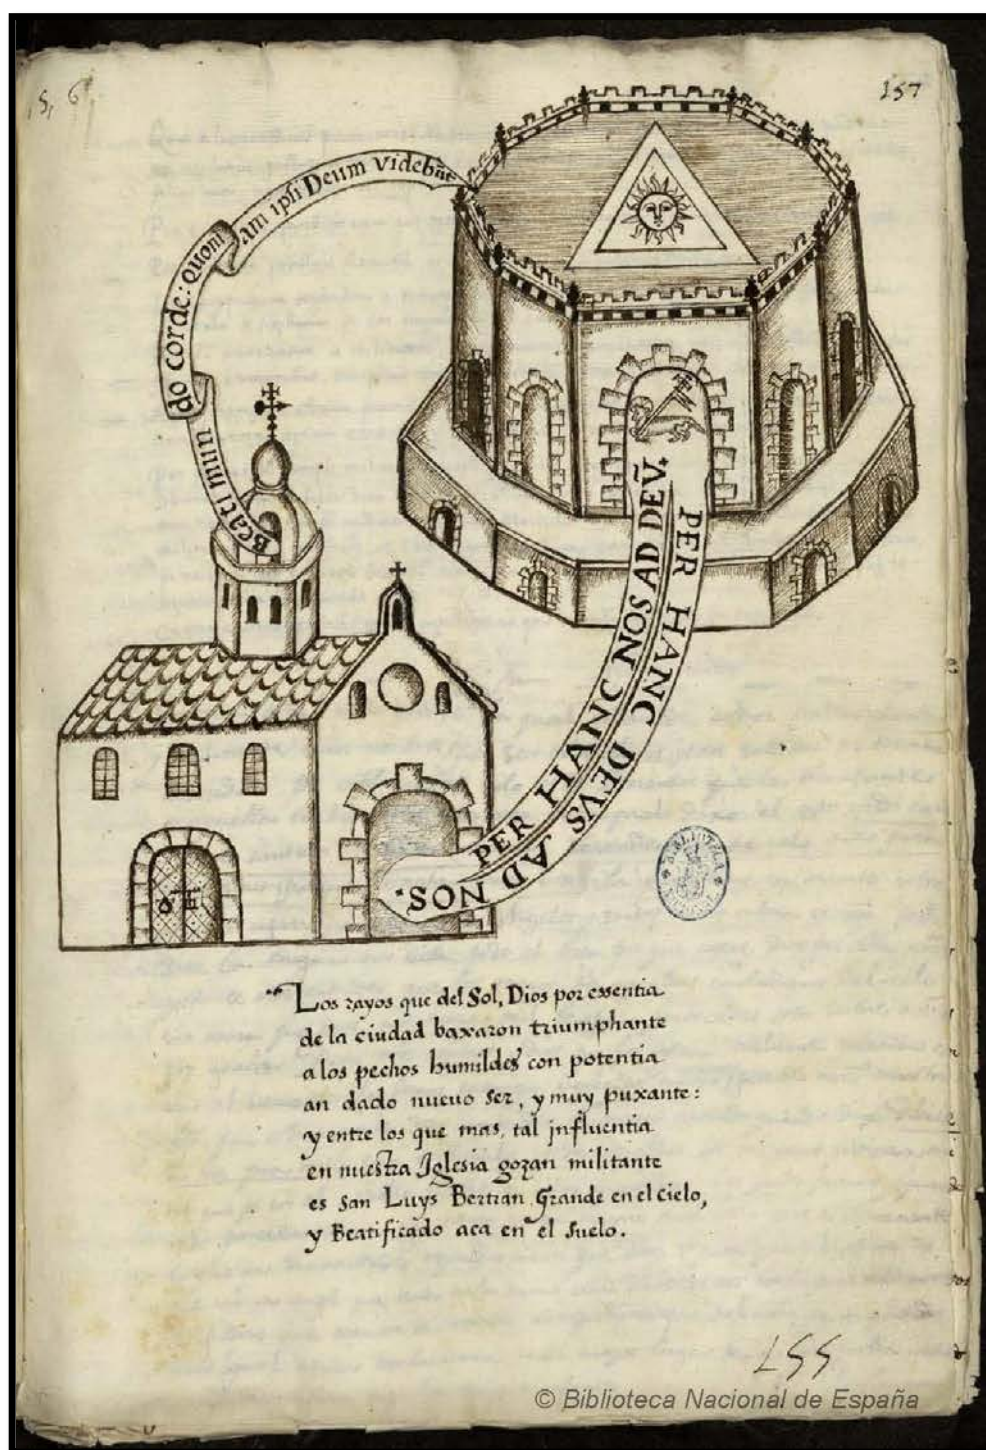 157
Beati mun do corde: quoni am ipsi Deum videbūt
PER HANC NOS AD DEŪ.
PER HANC DEVS AD NOS.
BIBLIOTECA
Los rayos que del Sol, Dios por essentia
de la ciudad baxaron triumphante
a los pechos humildes con potentia
an dado nueuo ser, y muy puxante:
y entre los que mas, tal jnfluentia
en nuestra Jglesia gozan militante
es san Luys Bertran Grande en el cielo,
y Beatificado aca en el suelo.
155
© Biblioteca Nacional de España